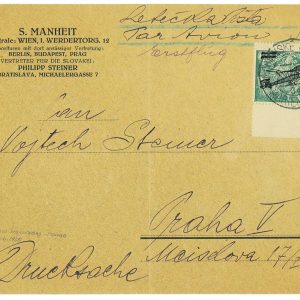 S. MANHEIT
Zentrale: WIEN, I. WERDERTORG. 12
BERLIN, BUDAPEST, PRAG
VERTRETER FÜR DIE SLOVAKEI:
PHILIPP STEINER
BRATISLAVA, MICHAELERGASSE 7
Par Avion
Erstflug
an
Vojtech Steiner
Praha V
Meislova 17/
Drucksache